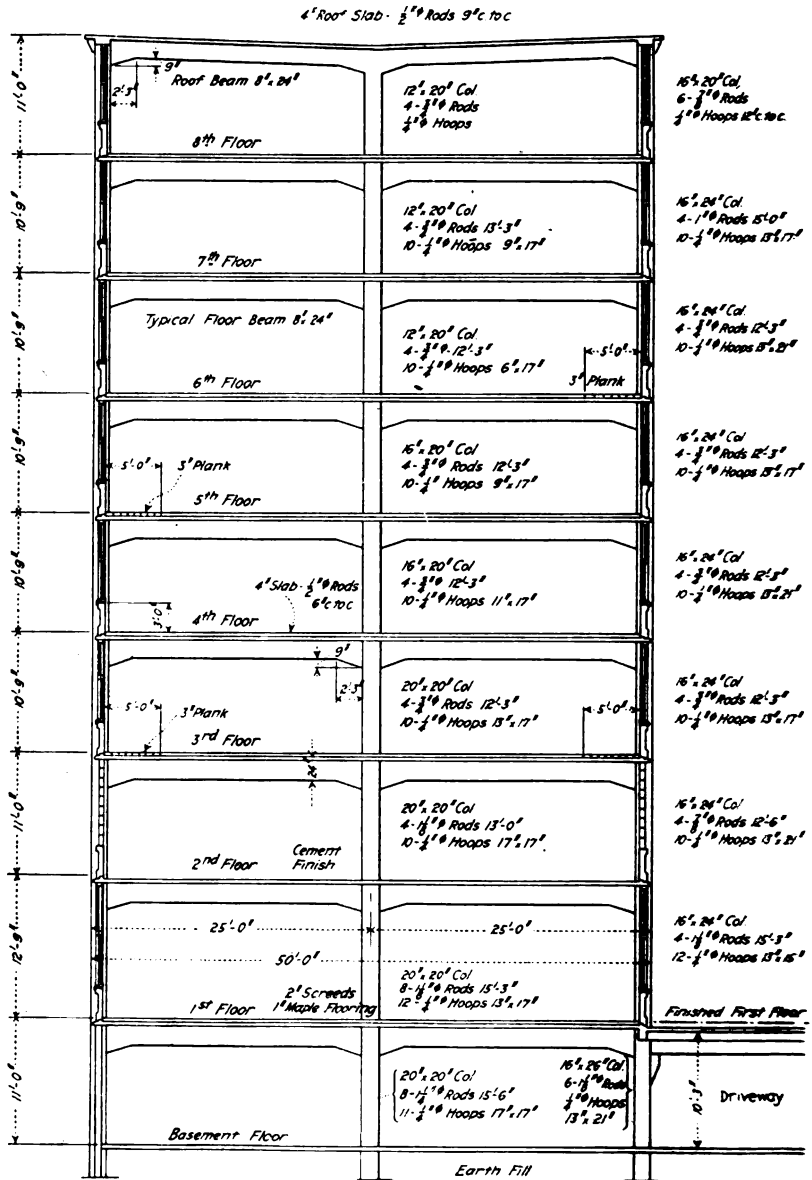 4" Roof Slab - 1/2"φ Rods 9"c to c
11'-0"
9"
2'-3"
Roof Beam 8"x24"
12"x20" Col.
4-3/4"φ Rods
1/4"φ Hoops
16"x20" Col.
6-7/8"φ Rods
1/4"φ Hoops 12"c. to c.
8th Floor
10'-9"
12"x20" Col
4-3/4"φ Rods 13'-3"
10-1/4"φ Hoops 9"x17"
16"x24" Col.
4-1"φ Rods 15'-0"
10-1/4"φ Hoops 13"x17"
7th Floor
10'-9"
Typical Floor Beam 8"x24"
12"x20" Col.
4-3/4"φ-12'-3"
10-1/4"φ Hoops 6"x17"
5'-0"
3" Plank
16"x24" Col.
4-3/4"φ Rods 12'-3"
10-1/4"φ Hoops 13"x21"
6th Floor
10'-9"
5'-0"
3" Plank
16"x20" Col
4-3/4"φ Rods 12'-3"
10-1/4" Hoops 9"x17"
16"x24" Col.
4-3/4"φ Rods 12'-3"
10-1/4"φ Hoops 13"x17
5th Floor
10'-9"
3'-0"
4" Slab-1/2"φ Rods
6"c to c
16"x20" Col
4-3/4"φ 12'-3"
10-1/4"φ Hoops 11"x17"
16"x24" Col
4-3/4"φ Rods 12'-3"
10-1/4"φ Hoops 13"x21"
4th Floor
10'-9"
9"
2'-3"
5'-0"
3" Plank
20"x20" Col
4-3/4"φ Rods 12'-3"
10-1/4"φ Hoops 13"x17"
5'-0"
16"x24" Col
4-3/4"φ Rods 12'-3"
10-1/4"φ Hoops 13"x17"
3rd Floor
11'-0"
24"
20"x20" Col
4-1 1/8"φ Rods 13'-0"
10-1/4"φ Hoops 17"x17"
16"x24" Col
4-7/8"φ Rods 12'-6"
10-1/4"φ Hoops 13"x21"
2nd Floor
Cement
Finish
12'-9"
25'-0"
25'-0"
50'-0"
20"x20" Col
8-1 1/8"φ Rods 15'-3"
12 1/4"φ Hoops 13"x17"
16"x24" Col.
4-1 1/8"φ Rods 15'-3"
12-1/4"φ Hoops
1st Floor
2" Screeds
1" Maple Flooring
Finished First Floor
11'-0"
20"x20" Col
8-1 1/4"φ Rods 15'-6"
11-1/4"φ Hoops 17"x17"
16"x26" Col.
6-1 1/8"φ Rods
1/4"φ Hoops
13"x21"
10'-3"
Driveway
Basement Floor
Earth Fill